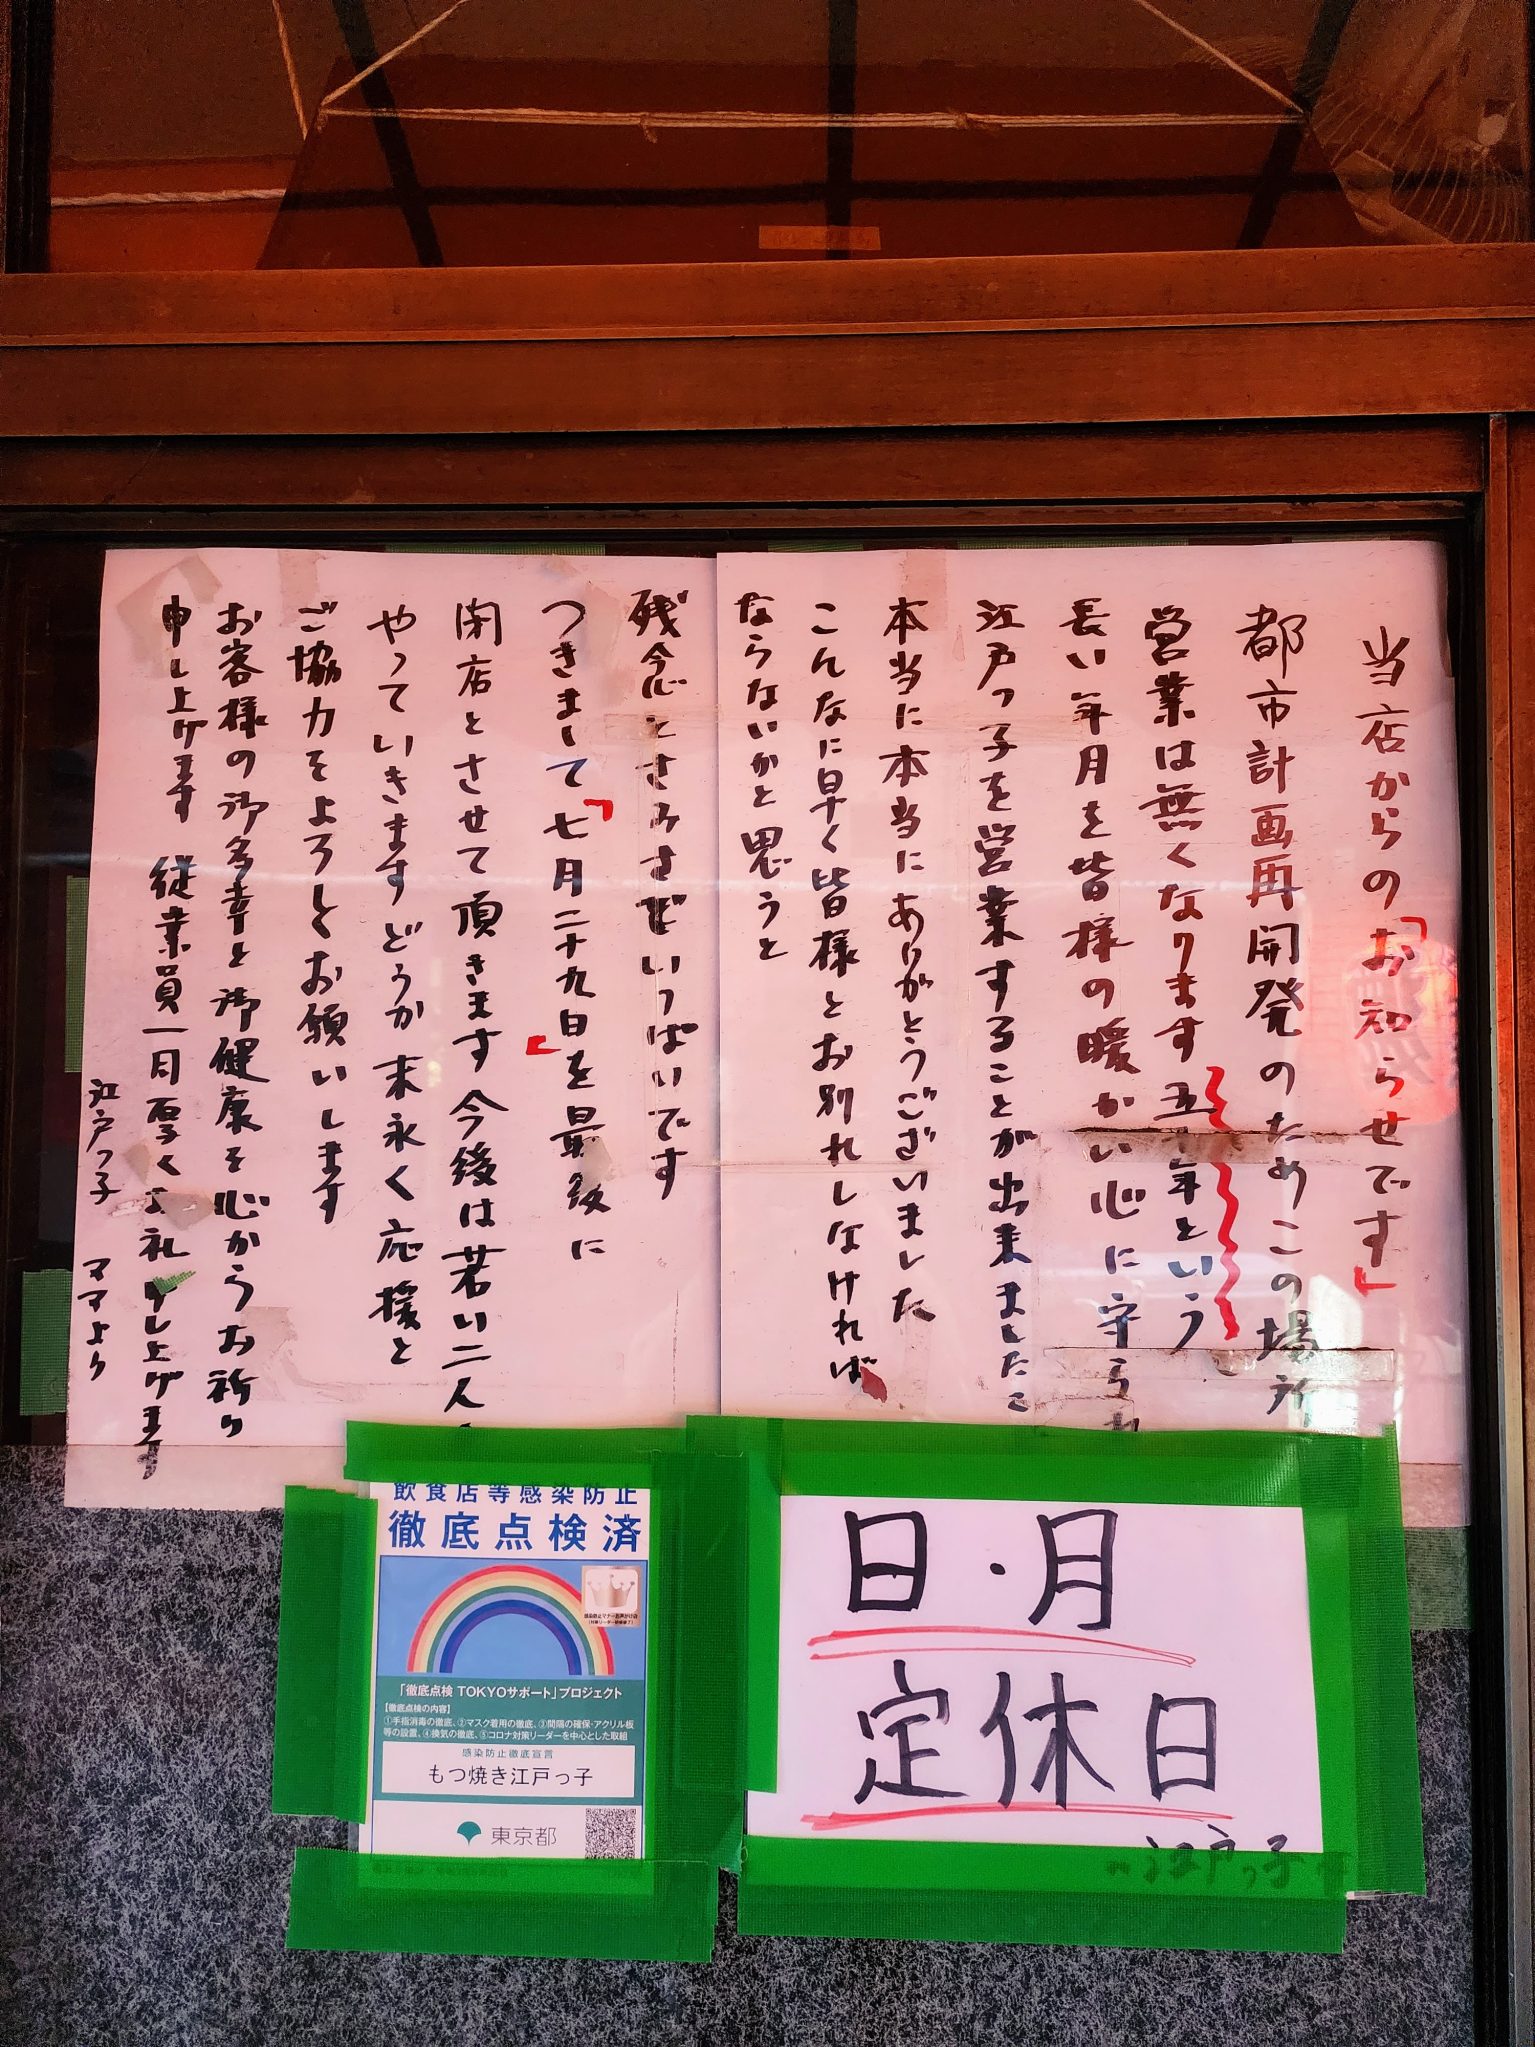 当店からの「お知らせです」
都市計画再開発のためこの場所
営業は無くなります 五十年という
長い年月を皆様の暖かい心に守られ
江戸っ子を営業することが出来ましたこ
本当に本当にありがとうございました
こんなに早く皆様とお別れしなければ
ならないかと思うと
残念とさみさでいっぱいです
つきまして「七月二十九日」を最後に
閉店とさせて頂きます今後は若い二人
やっていきますどうか末永く応援と
ご協力をよろしくお願いします
お客様の御多幸と御健康を心からお祈り
申し上げます 従業員一同厚くお礼申し上げます
江戸っ子 ママより
飲食店等感染防止
徹底点検済
「徹底点検 TOKYOサポート」プロジェクト
【徹底点検の内容】
①手指消毒の徹底、②マスク着用の徹底、③間隔の確保・アクリル板
等の設置、④換気の徹底、⑤コロナ対策リーダーを中心とした取組
感染防止徹底宣言
もつ焼き江戸っ子
東京都
日・月
定休日
江戸っ子